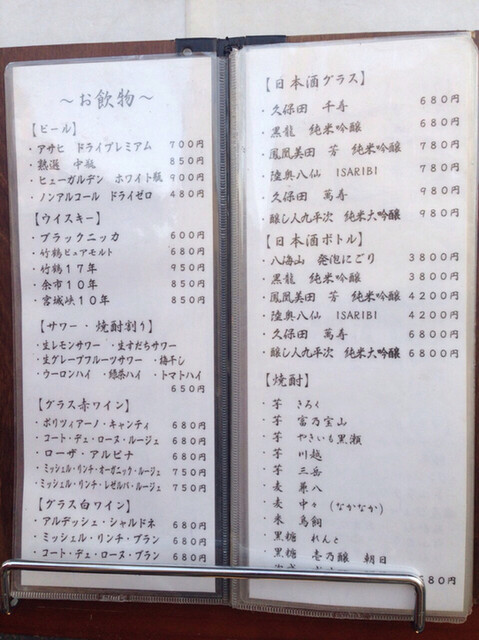 ～お飲物～
【ビール】
・アサヒ ドライプレミアム 700円
・熟選 中瓶 850円
・ヒューガルデン ホワイト瓶 900円
・ノンアルコール ドライゼロ 480円
【ウイスキー】
・ブラックニッカ 600円
・竹鶴ピュアモルト 680円
・竹鶴17年 950円
・余市10年 850円
・宮城峡10年 850円
【サワー・焼酎割り】
・生レモンサワー ・生すだちサワー
・生グレープフルーツサワー ・梅干し
・ウーロンハイ ・緑茶ハイ ・トマトハイ
650円
【グラス赤ワイン】
・ポリツィアーノ・キャンティ 680円
・コート・デュ・ローヌ・ルージュ 680円
・ローザ・アルビナ 680円
・ミッシェル・リンチ・オーガニック・ルージュ 750円
・ミッシェル・リンチ・レゼルバ・ルージュ 750円
【グラス白ワイン】
・アルデッシュ・シャルドネ 680円
・ミッシェル・リンチ・ブラン 680円
・コート・デュ・ローヌ・ブラン 680円
【日本酒グラス】
・久保田 千寿 680円
・黒龍 純米吟醸 680円
・鳳凰美田 芳 純米吟醸 780円
・陸奥八仙 ISARIBI 780円
・久保田 萬寿 980円
・醸し人九平次 純米大吟醸 980円
【日本酒ボトル】
・八海山 発泡にごり 3800円
・黒龍 純米吟醸 3800円
・鳳凰美田 芳 純米吟醸 4200円
・陸奥八仙 ISARIBI 4200円
・久保田 萬寿 6800円
・醸し人九平次 純米大吟醸 6800円
【焼酎】
・芋 きろく
・芋 富乃宝山
・芋 やきいも黒瀬
・芋 川越
・芋 三岳
・麦 兼八
・麦 中々 (なかなか)
・米 鳥飼
・黒糖 れんと
・黒糖 壱乃醸 朝日
80円